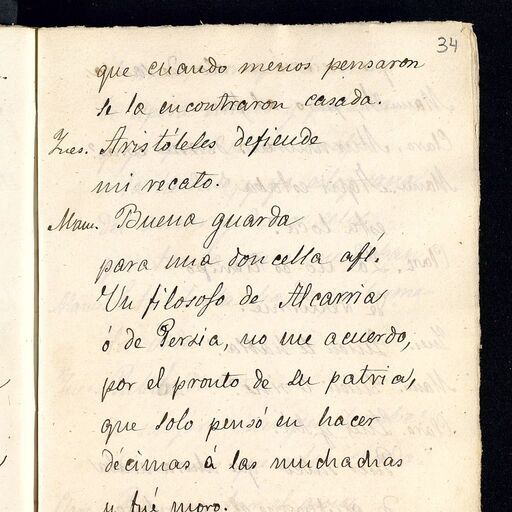 34
que cuando menos pensaron
se la encontraron casada.
Ines. Aristóteles defiende
mi recato.
Man. Buena guarda
para una doncella
Un filosofo de Alcarria
ó de Persia, no me acuerdo,
por el pronto de su patria,
que solo pensó en hacer
décimas á las muchachas
y fué moro.